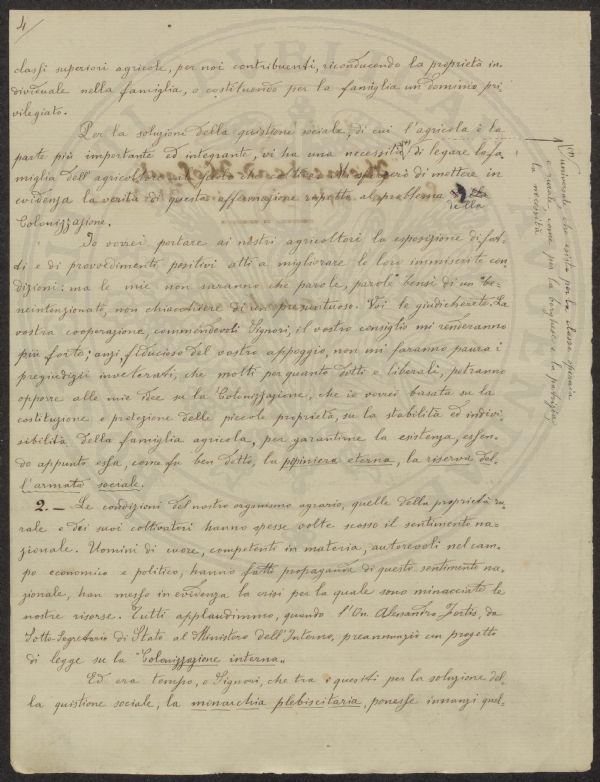 4
classi superiori agricole, per noi contribuenti, riconducendo la proprietà in-
dividuale nella famiglia, o costituendo per la famiglia un dominio pri
vilegiato.
Per la soluzione della quistione sociale, di cui l'agricola è la
parte più importante ed integrante, vi ha una necessità di legare la fa
miglia dell'agricoltore di mettere in
evidenza la verità di questa affermazione rispetto al problema della
Colonizzazione.
universale che esista per la classe operaia
e rurale come per la borghesia e la patrizia
la necessità
Io vorrei portare ai nostri agricoltori la esposizione di fat-
ti e di provvedimenti positivi atti a migliorare le loro immiserite con
dizioni: ma le mie non saranno che parole, parole bensì di un be-
neintenzionato, non chiacchiere di un presuntuoso. Voi le giudicherete. La
vostra cooperazione, commendevoli Signori, il vostro consiglio mi renderanno
più forte; anzi, fiducioso del vostro appoggio, non mi faranno paura i
pregiudizii inveterati, che molti per quanto dotti e liberali, potranno
opporre alle mie idee su la Colonizzazione, che io vorrei basata su la
costituzione e protezione delle piccole proprietà, su la stabilità ed indivi
sibilità della famiglia agricola, per garantirne la esistenza, essen-
do appunto essa, come fu ben detto, la pepiniera eterna, la riserva del-
l'armata sociale.
2. — Le condizioni del nostro organismo agrario, quelle della proprietà ru-
rale e dei suoi coltivatori hanno spesse volte scosso il sentimento na-
zionale. Uomini di cuore, competenti in materia, autorevoli nel cam-
po economico e politico, hanno fatto propaganda di questo sentimento na-
zionale, han messo in evidenza la crisi per la quale sono minacciate le
nostre risorse. Tutti applaudimmo, quando l'On. Alessandro Fortis, da
Sotto-Segretario di Stato al Ministero dell'Interno, preannunziò un progetto
di legge su la "Colonizzazione interna„
Ed era tempo, o Signori, che tra i quesiti per la soluzione del-
la quistione sociale, la monarchia plebiscitaria, ponesse innanzi quel-